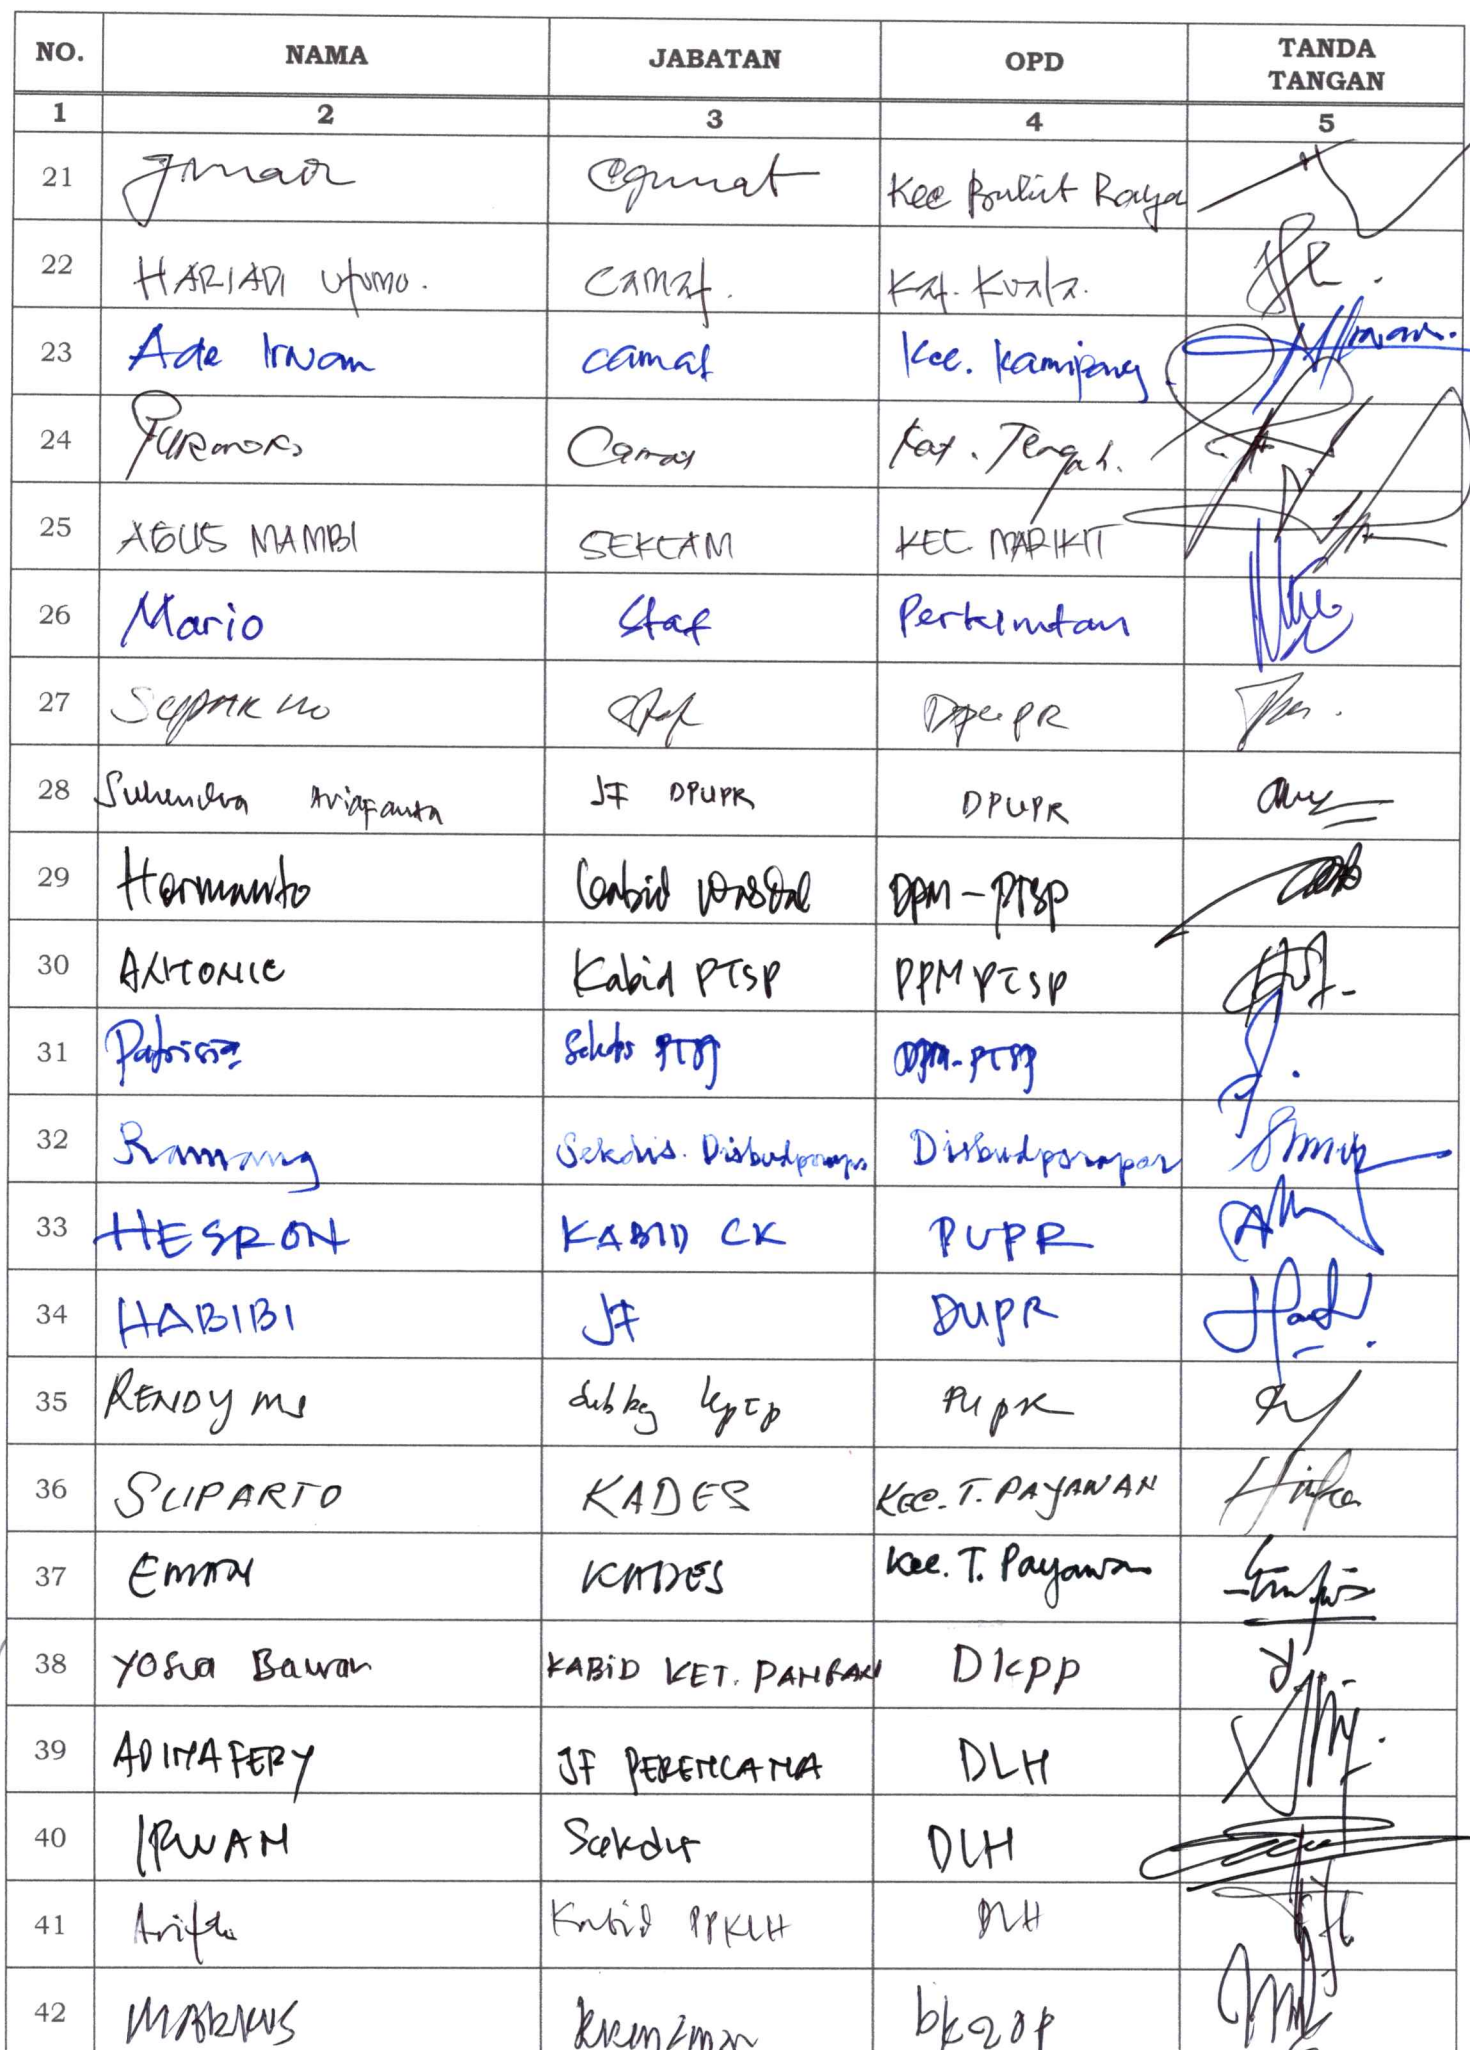 NO. NAMA JABATAN OPD TANDA TANGAN
1 2 3 4 5
21 Camat Kec Bukit Raya
22 HARIADI Utomo. Camat. Kat. Kuala.
23 Ade Irwan camat Kec. Kamipang
24 Camat Kat. Tengah.
25 AGUS MAMBI SEKCAM KEC. MARIKIT
26 Mario Staf Perkimtan
27 Suparno Staf DPUPR
28 Suhendra JF DPUPR DPUPR
29 Hermanto Kabid DPM-PTSP
30 ANTONIE Kabid PTSP DPMPTSP
31 Patrisia Sekdis PTSP DPM-PTSP
32 Ramang Sekdis. Disbudporapar Disbudporapar
33 HESRON KABID CK PUPR
34 HABIBI JF DUPR
35 RENDY MS PUPR
36 SUPARTO KADES KEC. T. PAYAWAN
37 EMAN KADES Kec. T. Payawan
38 Yosua Bawan KABID KET. PANGAN DKPP
39 ADINAFERY JF PERENCANA DLH
40 IRWAN Sekdis DLH
41 Kabid PPKLH DLH
42 MARKUS